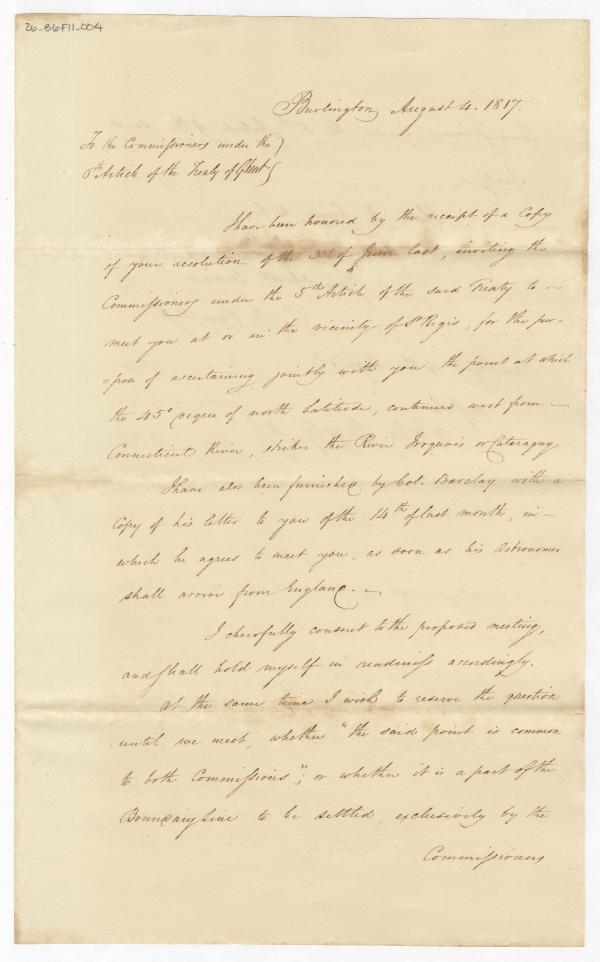 26-B6F11-004
Burlington August 4. 1817.
To the Commissioners under the
6th Article of the Treaty of Ghent
I have been honored by the receipt of a Copy
of your resolution of the of June last, inviting the
Commissioners under the 5th Article of the said Treaty to
meet you at or in the vicinity of St Regis, for the pur-
=pose of ascertaining jointly with you the point at which
the 45° degree of north Latitude, continued west from
Connecticut River, strikes the River Iroquois or Cataraguy.
I have also been furnished by Col. Barclay with a
Copy of his letter to you of the 14th of last month, in
which he agrees to meet you, as soon as his Astronomer
shall arrive from England.
I cheerfully consent to the proposed meeting,
and shall hold myself in readiness accordingly.
At the same time I wish to reserve the question
until we meet, whether "the said point is common
to both Commissions"; or whether it is a part of the
Boundary Line to be settled, exclusively by the
Commissioners